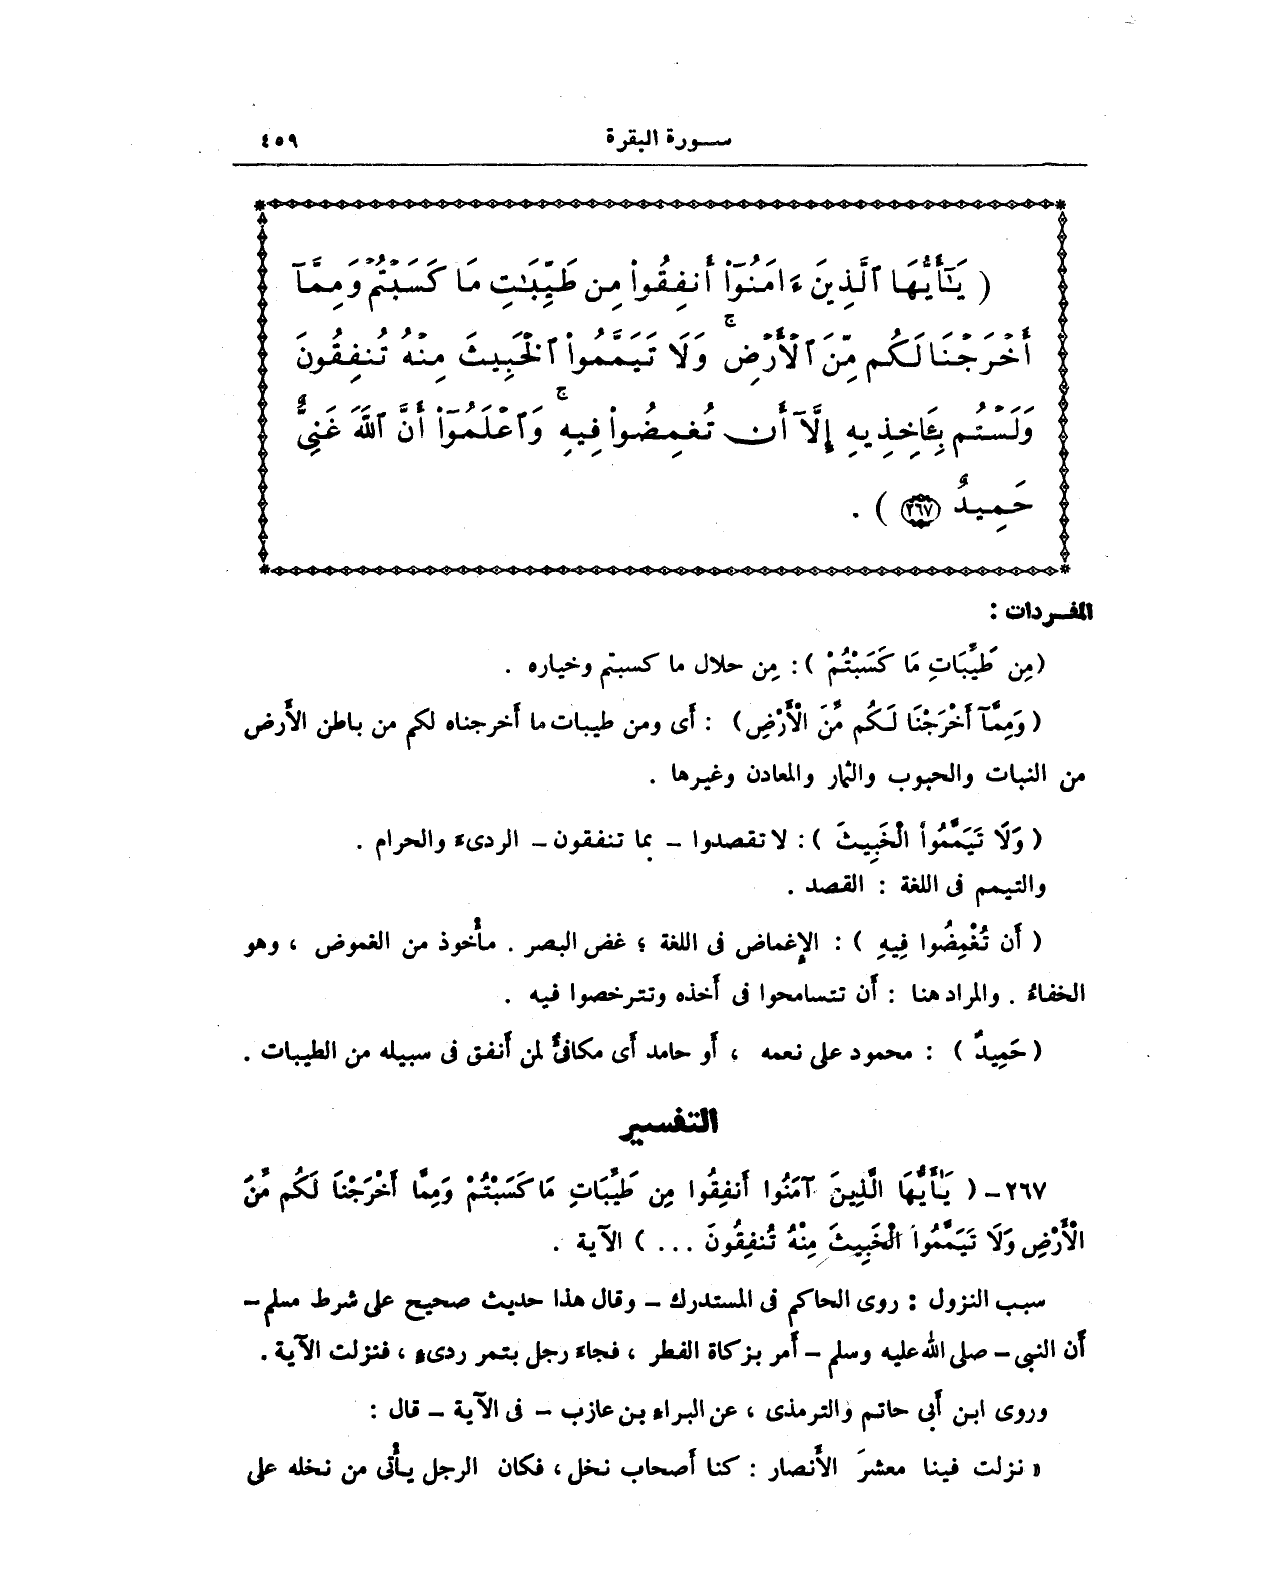 سورة البقرة ٤٥٩
( يَـٰٓأَيُّهَا ٱلَّذِينَ ءَامَنُوٓاْ أَنفِقُواْ مِن طَيِّبَـٰتِ مَا كَسَبْتُمْ وَمِمَّآ
أَخْرَجْنَا لَكُم مِّنَ ٱلْأَرْضِ ۚ وَلَا تَيَمَّمُواْ ٱلْخَبِيثَ مِنْهُ تُنفِقُونَ
وَلَسْتُم بِـَٔاخِذِيهِ إِلَّآ أَن تُغْمِضُواْ فِيهِ ۚ وَٱعْلَمُوٓاْ أَنَّ ٱللَّهَ غَنِيٌّ
حَمِيدٌ ٢٦٧ ) .
المفردات :
(مِن طَيِّبَاتِ مَا كَسَبْتُمْ ) : مِن حلال ما كسبتم وخياره .
( وَمِمَّآ أَخْرَجْنَا لَكُم مِّنَ الْأَرْضِ ) : أى ومن طيبات ما أخرجناه لكم من باطن الأرض
من النبات والحبوب والثمار والمعادن وغيرها .
( وَلَا تَيَمَّمُواْ الْخَبِيثَ ) : لا تقصدوا – بما تنفقون – الردىء والحرام .
والتيمم فى اللغة : القصد .
( أَن تُغْمِضُوا فِيهِ ) : الإغماض فى اللغة ؛ غض البصر . مأخوذ من الغموض ، وهو
الخفاءُ . والمراد هنا : أن تتسامحوا فى أخذه وتترخصوا فيه .
( حَمِيدٌ ) : محمود على نعمه ، أو حامد أى مكافئٌ لمن أنفق فى سبيله من الطيبات .
التفسير
٢٦٧ – ( يَـٰأَيُّهَا الَّذِينَ آمَنُوا أَنفِقُوا مِن طَيِّبَاتِ مَا كَسَبْتُمْ وَمِمَّا أَخْرَجْنَا لَكُم مِّنَ
الْأَرْضِ وَلَا تَيَمَّمُواْ الْخَبِيثَ مِنْهُ تُنفِقُونَ ... ) الآية .
سبب النزول : روى الحاكم فى المستدرك – وقال هذا حديث صحيح على شرط مسلم –
أن النبى – صلى الله عليه وسلم – أمر بزكاة الفطر ، فجاءَ رجل بتمر ردىء ، فنزلت الآية .
وروى ابن أبى حاتم والترمذى ، عن البراء بن عازب – فى الآية – قال :
« نزلت فينا معشرَ الأنصار : كنا أصحاب نخل ، فكان الرجل يأتى من نخله على